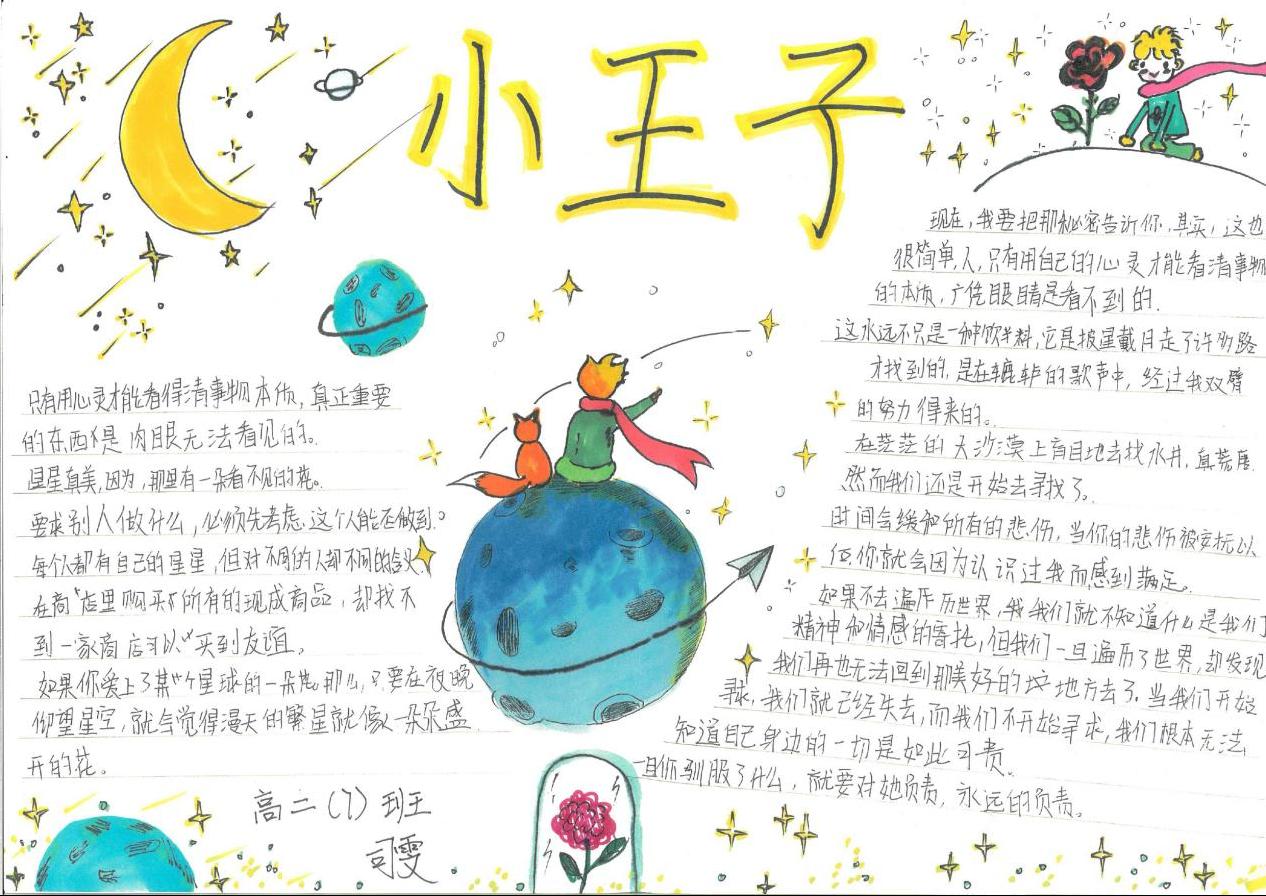 小王子
只有用心灵才能看得清事物本质，真正重要
的东西是肉眼无法看见的。
星星真美，因为，那里有一朵看不见的花。
要求别人做什么，必须先考虑这个人能否做到。
每个人都有自己的星星，但对不同的人却不同的含义
在商店里购买所有的现成商品，却找不
到一家商店可以买到友谊。
如果你爱上了某个星球的一朵花那么，只要在夜晚
仰望星空，就会觉得漫天的繁星就像一朵朵盛
开的花。
高二（7）班
司雯
现在，我要把那秘密告诉你，其实，这也
很简单，人，只有用自己的心灵才能看清事物
的本质，广凭眼睛是看不到的。
这水远不只是一种饮料，它是披星戴月走了许多路
才找到的，是在辘轳的歌声中，经过我双臂
的努力得来的。
在茫茫的大沙漠上盲目地去找水井，真荒唐
然而我们还是开始去寻找了。
时间会缓和所有的悲伤，当你的悲伤被安抚以
后你就会因为认识过我而感到满足。
如果不去遍历世界，我们就不知道什么是我们
精神和情感的寄托，但我们一旦遍历了世界，却发现
我们再也无法回到那美好的地方去了，当我们开始
寻求，我们就已经失去，而我们不开始寻求，我们根本无法
知道自己身边的一切是如此可贵。
一旦你驯服了什么，就要对她负责，永远的负责。